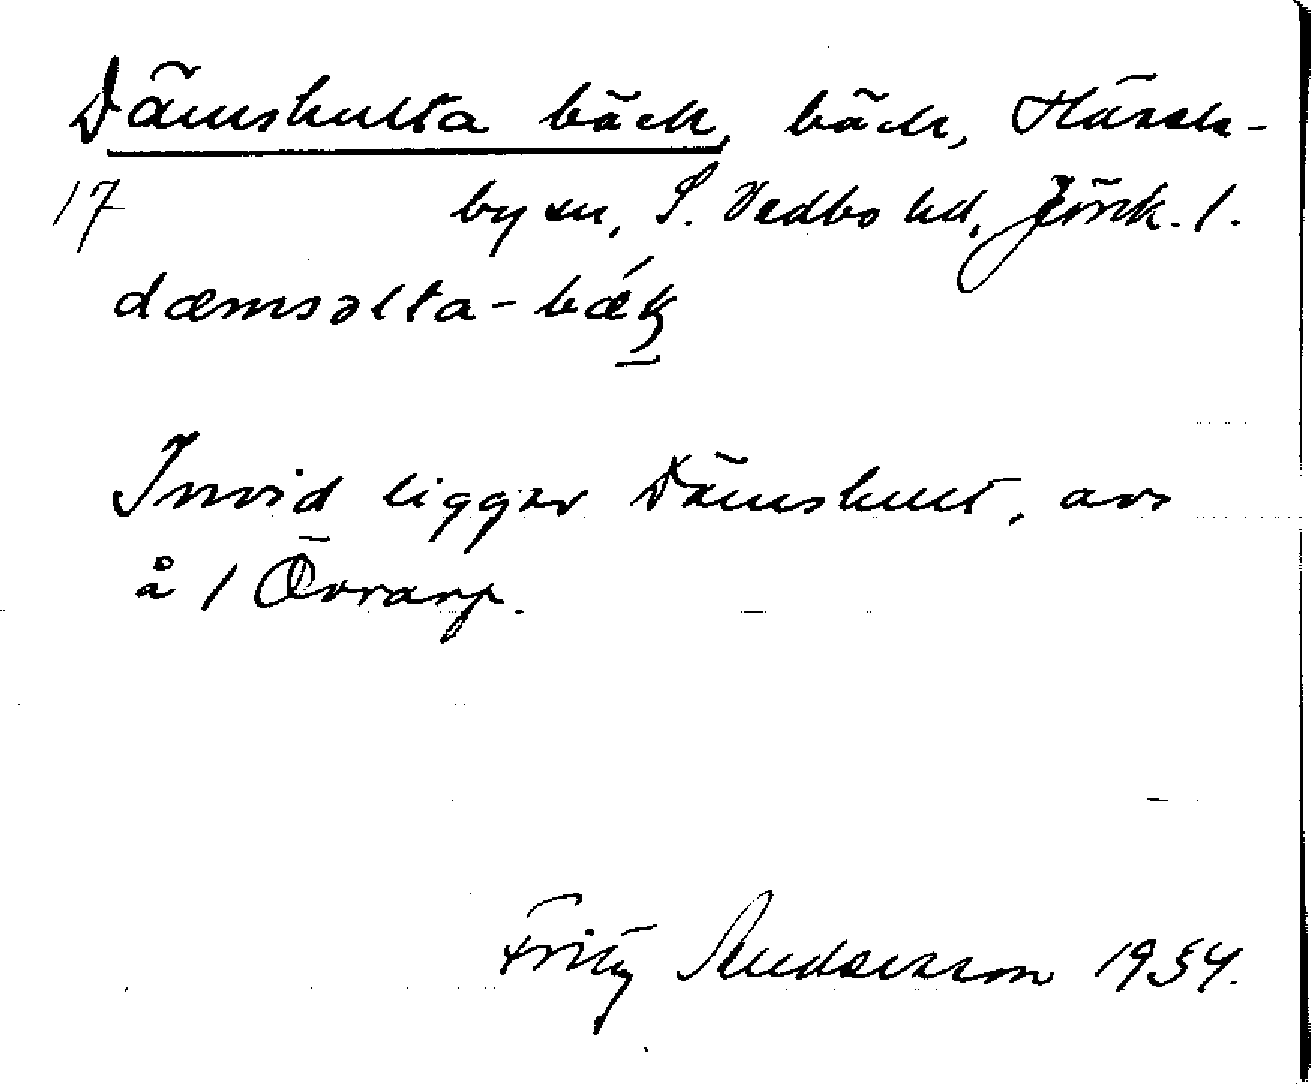 Dämshulta bäck, bäck, Hässle-
17 by sn, S. Vedbo hd, Jönk. l.
dæmsəlta-bǽk
Invid ligger Dämshult, avs
å 1 Övrarp.
Fritz Andersson 1954.